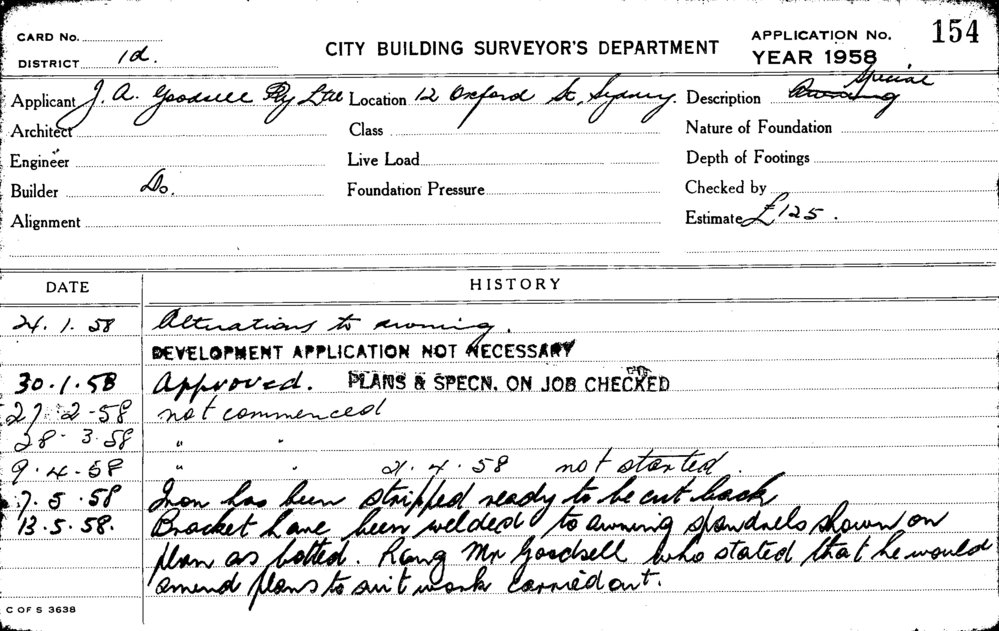 CARD No.
DISTRICT 1d.
CITY BUILDING SURVEYOR'S DEPARTMENT
APPLICATION No. 154
YEAR 1958
Applicant J. A. Goodsell Pty Ltd Location 12 Oxford St, Sydney. Description Awning Special
Architect Class Nature of Foundation
Engineer Live Load Depth of Footings
Builder Do. Foundation Pressure Checked by
Alignment Estimate £125.
DATE HISTORY
24.1.58 Alterations to awning.
DEVELOPMENT APPLICATION NOT NECESSARY
30.1.58 Approved. PLANS & SPECN. ON JOB CHECKED
27.2.58 not commenced
28.3.58 " "
9.4.58 " " 21.4.58 not started.
7.5.58 Iron has been stripped ready to be cut back
13.5.58. Bracket have been welded to awning spandrels shown on
plan as bolted. Rang Mr Goodsell who stated that he would
amend plans to suit work carried out.
C OF S 3638